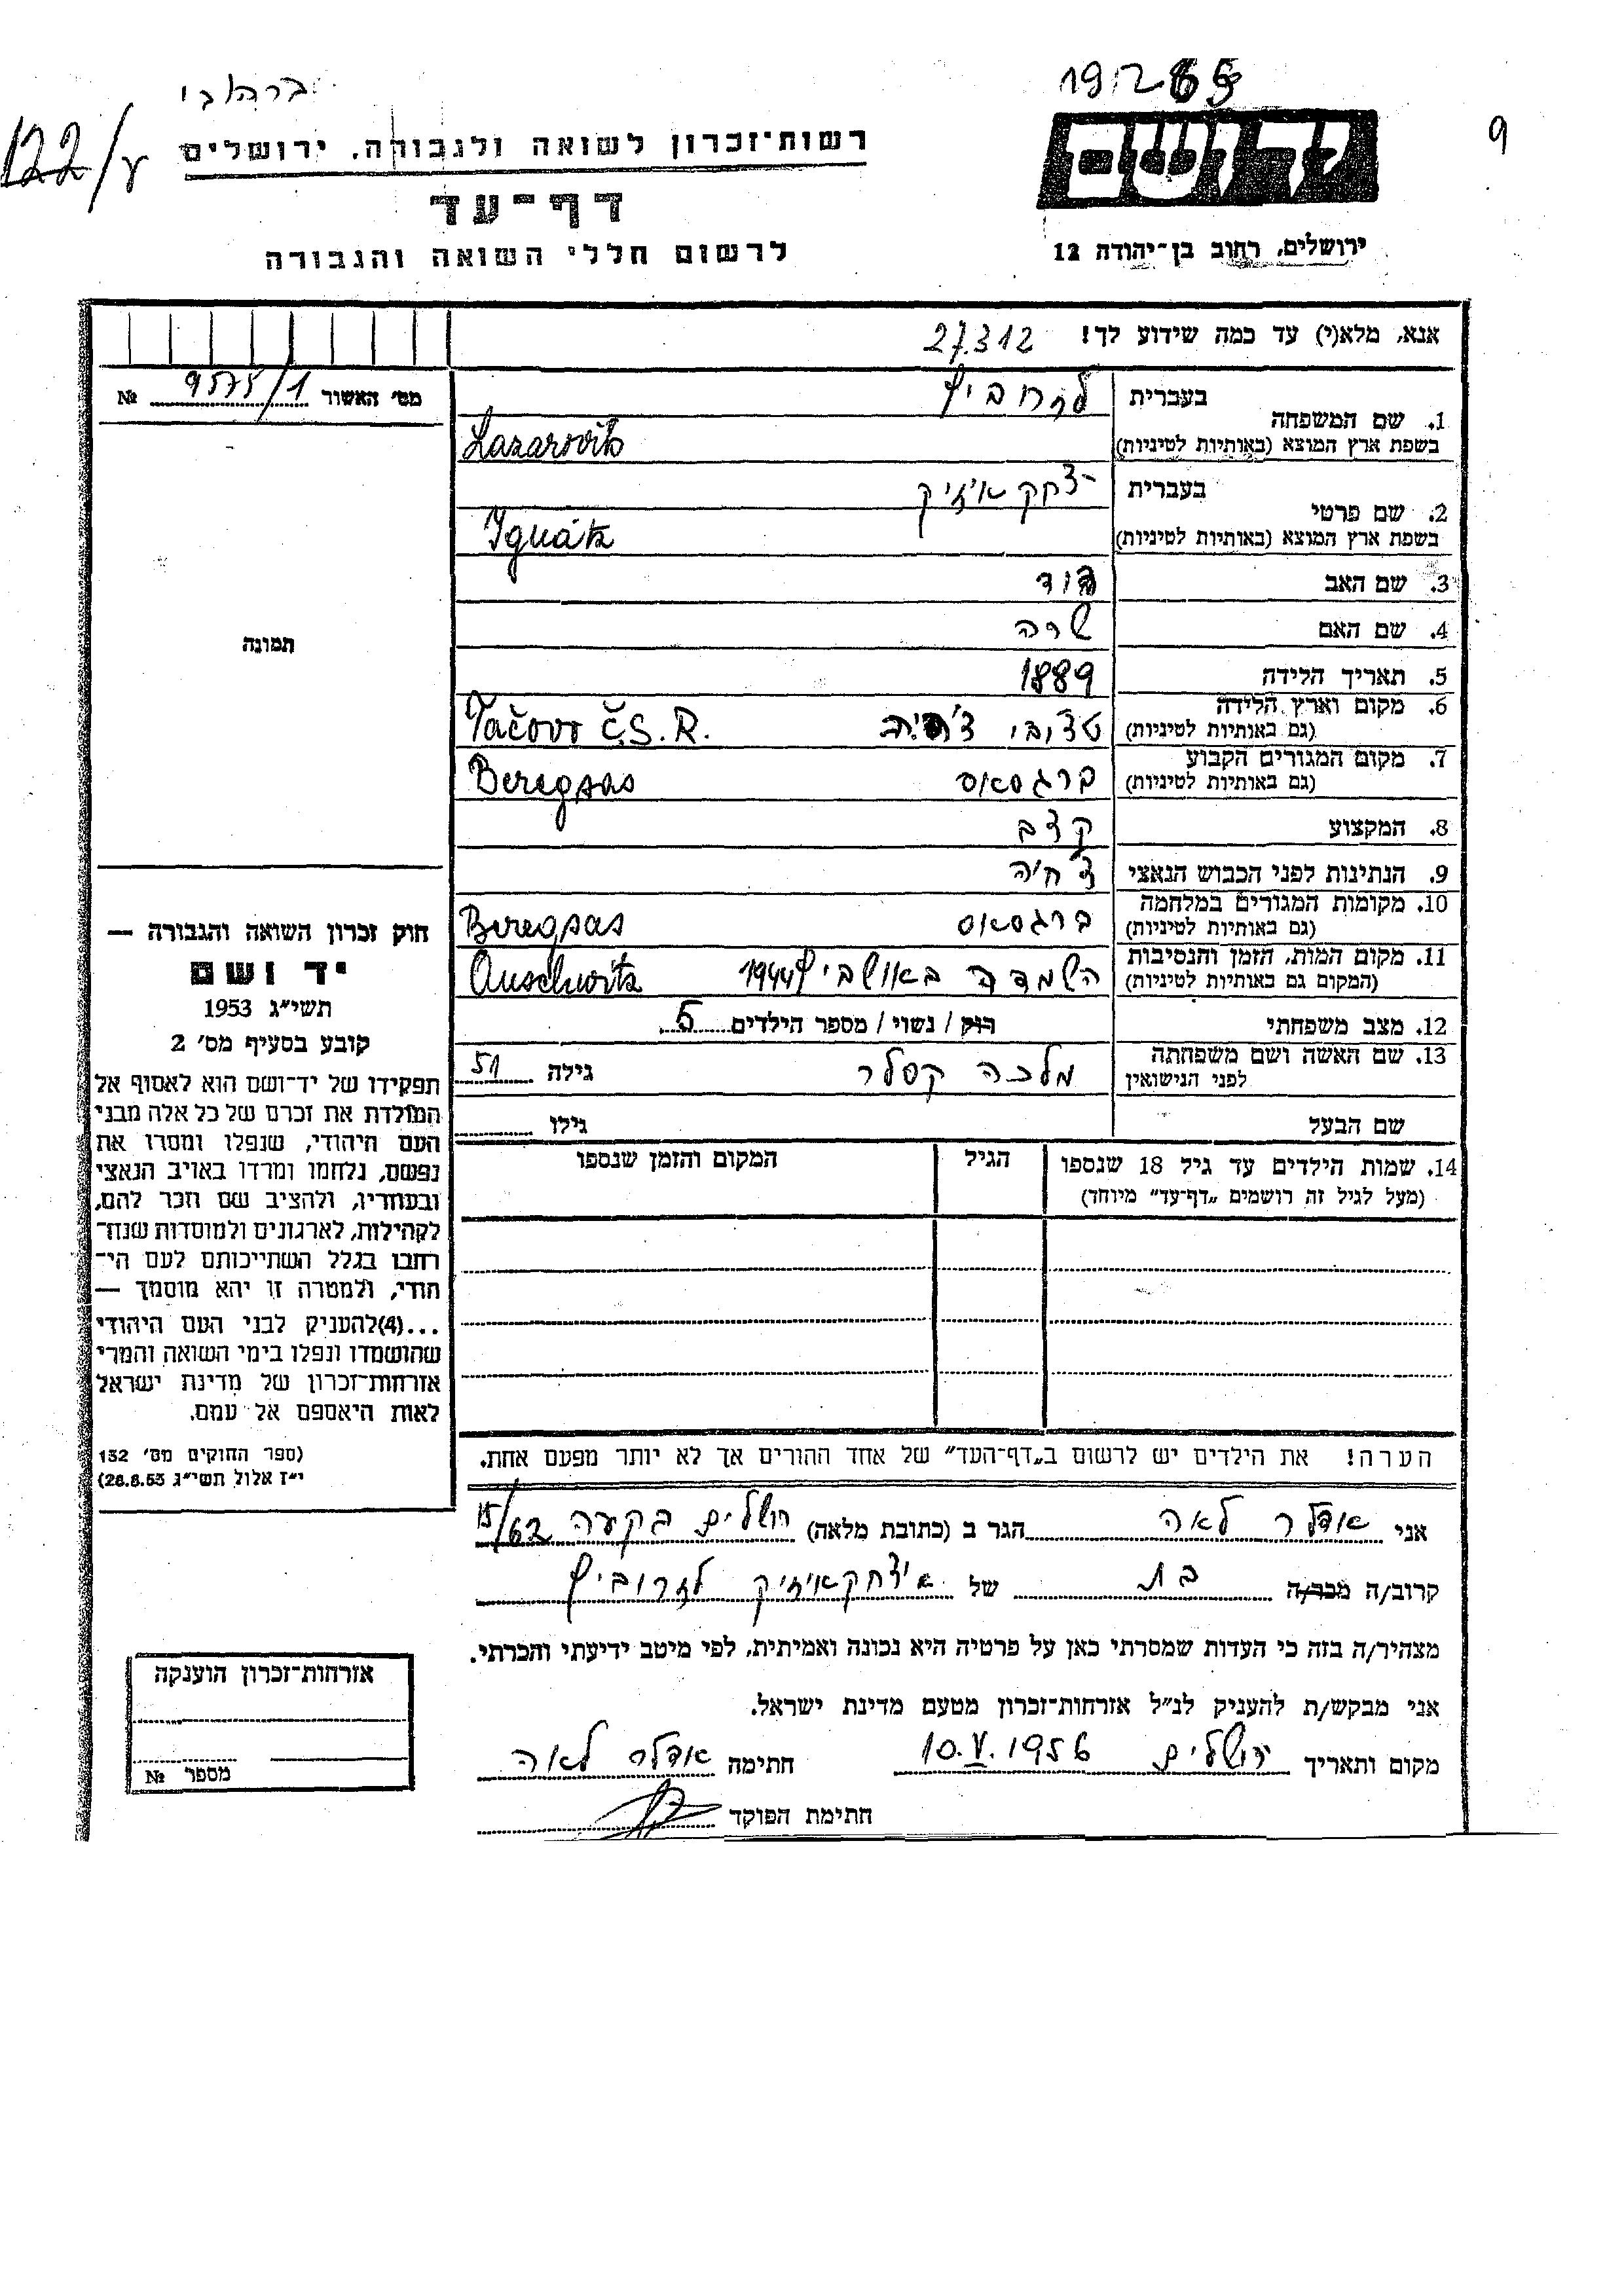 ברהובי
19265
9
122/ץ
רשות־זכרון לשואה ולגבורה. ירושלים
דף־עד
לרשום חללי השואה והגבורה
יד ושם
ירושלים, רחוב בן־יהודה 12
אנא, מלא(י) עד כמה שידוע לך!
27.312
מס׳ האשור 9575/1 №
תמונה
1. שם המשפחה
בעברית
בשפת ארץ המוצא (באותיות לטיניות) Lazarovits
2. שם פרטי
בעברית יצחק אייזיק
בשפת ארץ המוצא (באותיות לטיניות) Ignátz
3. שם האב דוד
4. שם האם שרה
5. תאריך הלידה 1889
6. מקום וארץ הלידה
(גם באותיות לטיניות) Tačovo Č.S.R.
7. מקום המגורים הקבוע
(גם באותיות לטיניות) ברגסאס Beregsas
8. המקצוע קצב
9. הנתינות לפני הכבוש הנאצי
10. מקומות המגורים במלחמה
(גם באותיות לטיניות) ברגסאס Beregsas
11. מקום המות, הזמן והנסיבות
(המקום גם באותיות לטיניות) השמדה באושביץ 1944 Auschwitz
12. מצב משפחתי רוק / נשוי / מספר הילדים 5
13. שם האשה ושם משפחתה
לפני הנישואין מלכה קסלר גילה 51
שם הבעל גילו
14. שמות הילדים עד גיל 18 שנספו
(מעל לגיל זה רושמים „דף־עד״ מיוחד)
הגיל
המקום והזמן שנספו
הערה! את הילדים יש לרשום ב„דף־העד״ של אחד ההורים אך לא יותר מפעם אחת.
חוק זכרון השואה והגבורה —
יד ושם
תשי״ג 1953
קובע בסעיף מס׳ 2
תפקידו של יד־ושם הוא לאסוף אל
המולדת את זכרם של כל אלה מבני
העם היהודי, שנפלו ומסרו את
נפשם, נלחמו ומרדו באויב הנאצי
ובעוזריו, ולהציב שם וזכר להם,
לקהילות, לארגונים ולמוסדות שנח־
רבו בגלל השתייכותם לעם הי־
הודי, ולמטרה זו יהא מוסמך —
...(4)להעניק לבני העם היהודי
שהושמדו ונפלו בימי השואה והמרי
אזרחות־זכרון של מדינת ישראל
לאות היאספם אל עמם.
(ספר החוקים מס׳ 132
י״ז אלול תשי״ג 28.8.53)
אני אדלר לאה הגר ב (כתובת מלאה) ירושלים בקעה 15/62
קרוב/ה מכר/ה בת של איצחק אייזיק לזרוביץ
מצהיר/ה בזה כי העדות שמסרתי כאן על פרטיה היא נכונה ואמיתית, לפי מיטב ידיעתי והכרתי.
אני מבקש/ת להעניק לנ״ל אזרחות־זכרון מטעם מדינת ישראל.
מקום ותאריך ירושלים 10.V.1956 חתימה אדלר לאה
חתימת הפוקד
אזרחות־זכרון הוענקה
מספר №